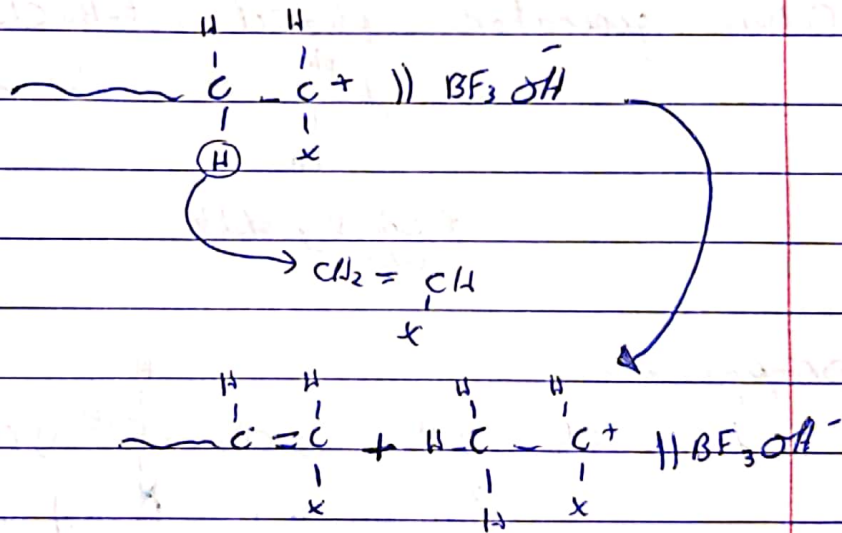 H H
C - C + )) BF3 OH -
H x
CH2 = CH
x
H H H H
C = C + H - C - C + || BF3 OH -
x H x